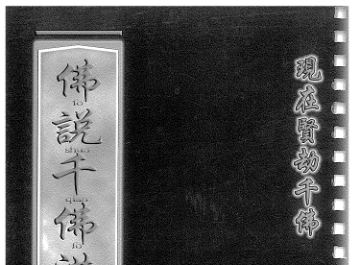 現在賢劫千佛
佛說千佛
fo
shuo
qian
fo